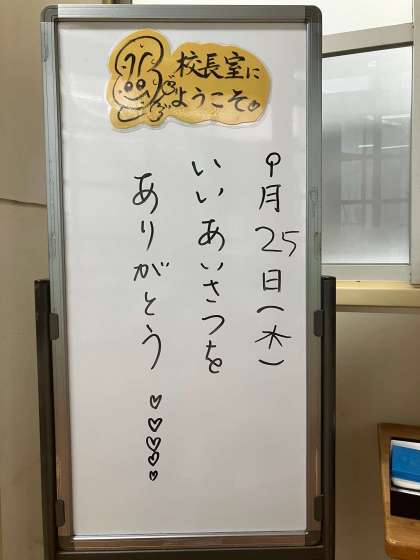 校長室に
ようこそ。
9月25日(木)
いいあいさつを
ありがとう♡♡♡♡♡